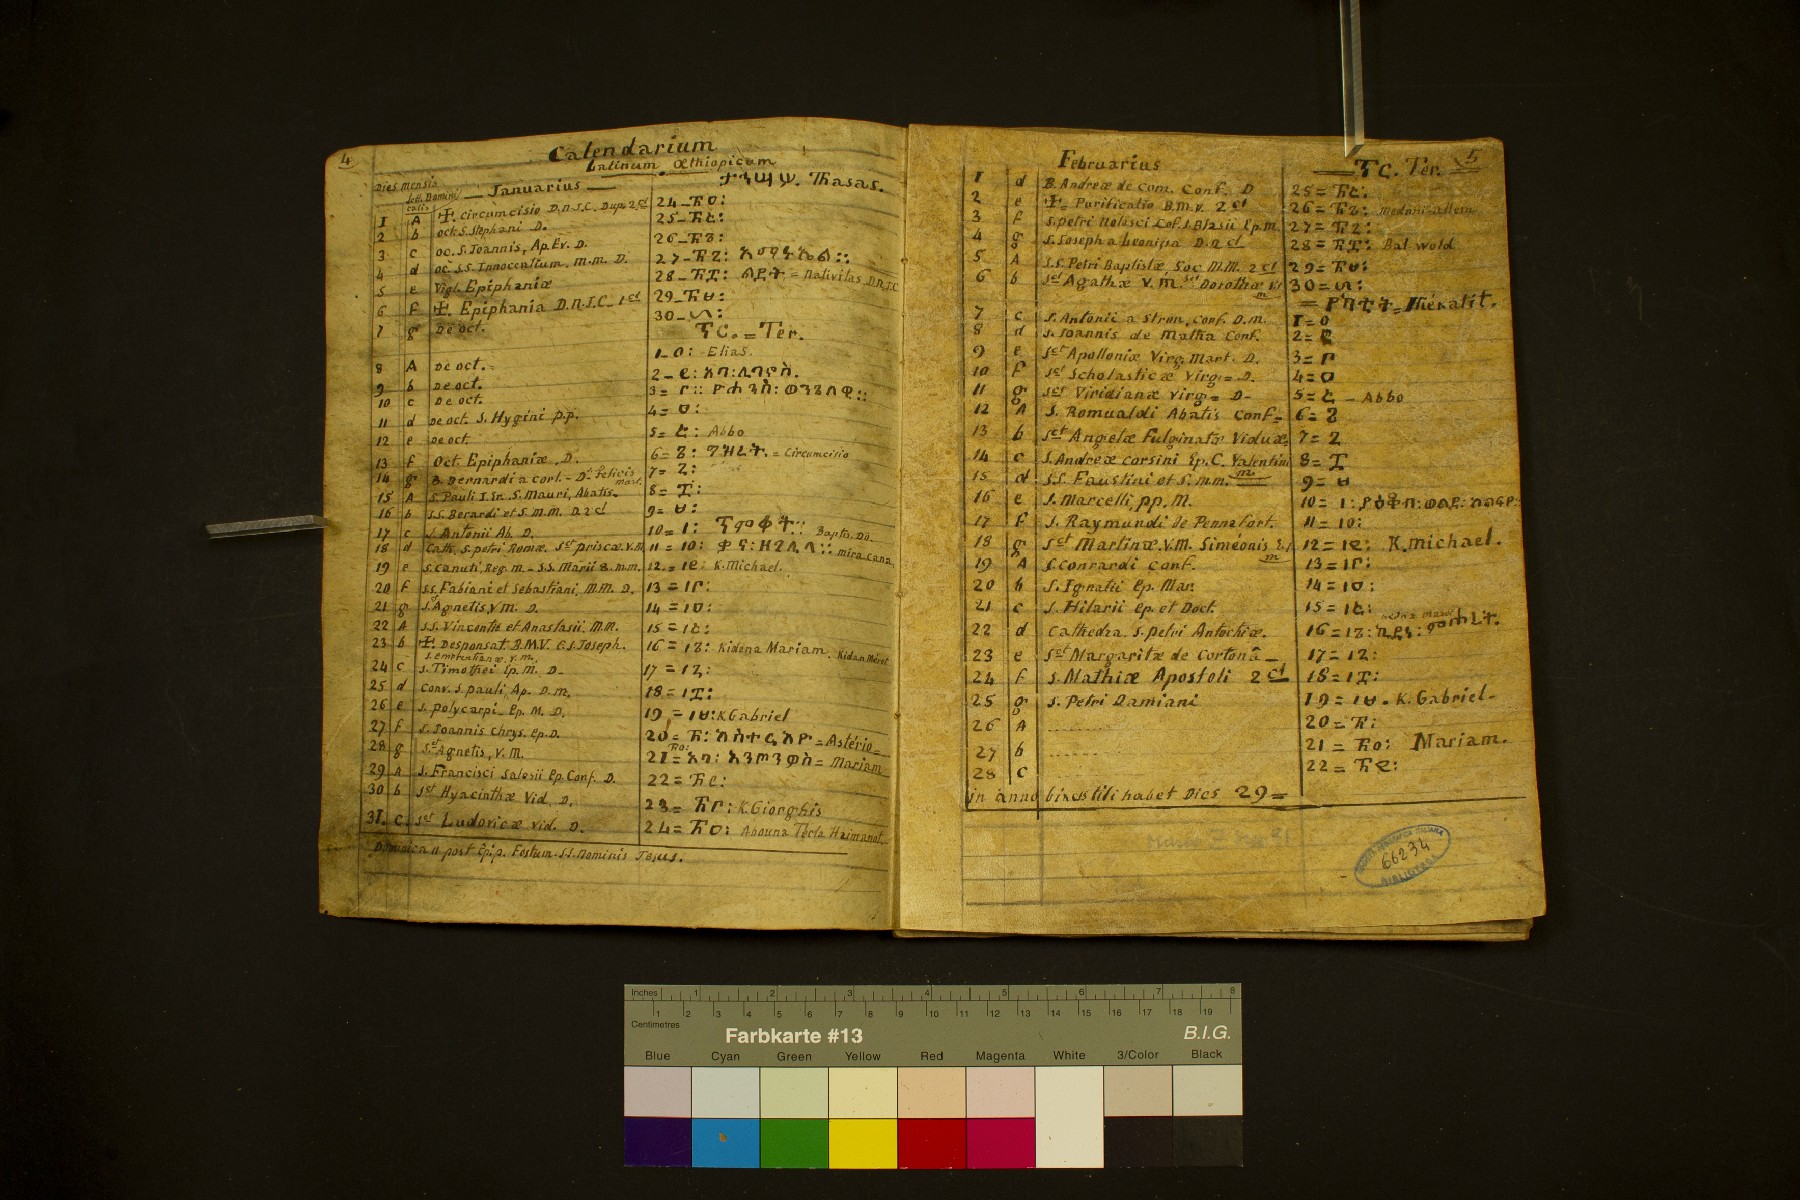 4
Calendarium
Latinum Œthiopicum
Dies mensis
Januarius
ታኅሣሥ. Thasas.
1 A ✠. Circumcisio D.N.J.C. Dup. 2 cl 24_፳፬:
2 b oct. S. Stephani D. 25_፳፭:
3 c oc. S. Joannis, Ap. Ev. D. 26_፳፮:
4 d oc. S.S. Innocentum, M.M. D. 27_፳፯: አማኑኤል::
5 e Vigl. Epiphaniæ 28_፳፰: ልደት = Nativitas D.N.J.C
6 f ✠. Epiphania D.N.J.C_ 1 cl 29_፳፱:
7 g De oct. 30_፴:
ጥር. = Ter.
8 A De oct. 1_፩: Elias.
9 b De oct. 2_፪: አባ:ሊባኖስ.
10 c De oct. 3= ፫:: ዮሐንስ: ወንጌላዊ::
11 d De oct. S. Hygini p.p. 4= ፬:
12 e De oct. 5= ፭: Abbo
13 f Oct. Epiphaniæ, D. 6= ፮: ግዝረት. = Circumcisio
14 g B. Bernardi a Corl. - D. Sti felicis mart. 7= ፯:
15 A S. Pauli I. Er. S. Mauri, Abatis_ 8= ፰:
16 b S.S. Berardi et S. M.M. D. 2 cl 9= ፱:
17 c S. Antonii Ab. D. 10= ፲: ጥምቀት:: Baptis. Do.
18 d Cath. S. petri Romæ. Sct priscæ. V.M. 11= ፲፩: ቃና: ዘገሊላ:: mira Cana
19 e S. Canuti, Reg. M. - S.S. Marii & M.M. 12.= ፲፪: K. Michael.
20 f S.S. Fabiani et Sebastiani, M.M. D. 13= ፲፫:
21 g Sct Agnetis, V M. D. 14= ፲፬:
22 A S.S. Vincentii et Anastasii, M.M. 15= ፲፭:
23 b ✠. Desponsat. B.M.V. C.S. Joseph. 16= ፲፮: Kidena Mariam. Kidan Méret
S. Emerentianæ. V. M.
24 c S. Timothei Ep. M. D_ 17= ፲፯:
25 d Conv. S. pauli, Ap. D. M. 18= ፲፰:
26 e S. polycarpi_ Ep. M. D. 19,= ፲፱: K Gabriel
27 f S. Joannis Chrys. Ep. D. 20= ፳: = Astério_
28 g Sct Agnetis, V. M. 21= ፳፩: አባ: እንጦንዮስ= Mariam
29 A S. Francisci Salesii Ep. Conf. D. 22= ፳፪:
30 b Sct Hyacinthæ Vid, D. 23= ፳፫: K. Giorghis
31. c. Sct Ludovicæ Vid. D. 24= ፳፬: Abouna Tecla Haimanot.
Dominica II post Epip. Festum S.S. Nominis Jesus.
5
Februarius
ጥር. Ter.
1 d B. Andreæ de Com. Conf. D 25= ፳፭:
2 e ✠= Purificatio B.M.V. 2 cl 26= ፳፮:
3 f S. petri Nolasci Cof. S. Blasii Ep. m. 27= ፳፯:
4 g S. Joseph a Leonissa D. 2 cl 28= ፳፰: Bal Wold
5 A S.S. Petri Baptistæ, Soc. M.M. 2 cl 29= ፳፱:
6 b Sct Agathæ V. M. Sct Dorotheæ V. m 30= ፴:
= የካቲት= Iékatit.
7 c S. Antonii a Stron, Conf. D. M. 1= ፩
8 d S. Joannis de Matha Conf. 2= ፪
9 e Sct Apolloniæ Virg. Mart. D. 3= ፫
10 f Sct Scholasticæ Virg= D. 4= ፬
11 g Sct Viridianæ Virg= D- 5= ፭ _ Abbo
12 A S. Romualdi Abatis Conf= 6= ፮
13 b Sct Angelæ Fulginatæ Viduæ. 7= ፯
14 c S. Andreæ Corsini Ep. C. Valentini m. 8= ፰
15 d S.S. Faustini et S. M.M. 9= ፱
16 e S. Marcelli, pp, M. 10= ፲: ያዕቆብ: ወልደ: እልፍዮ:
17 f S. Raymundi de Pennafort. 11= ፲፩:
18 g Sct Martinæ. V.M. Siméonis Ep. m 12= ፲፪: K. Michael.
19 A S. Conrardi Conf. 13= ፲፫:
20 b S. Ignatii Ep. Mar. 14= ፲፬:
21 c S. Hilarii Ep. et Doct. 15= ፲፭:
22 d Cathedra. S. Petri Antochiæ. 16= ፲፮: ኪዳነ: ምሕረት.
23 e Sct Margaritæ de Cortonâ_ 17= ፲፯:
24 f S. Mathiæ Apostoli 2 cl 18= ፲፰:
25 g S. Petri Damiani 19= ፲፱. K. Gabriel-
26 A .......... 20= ፳:
27 b ........ 21= ፳፩: Mariam.
28 c 22= ፳፪:
in anno bisestili habet Dies 29=
66234
BIBLIOTECA
Inches 1 2 3 4 5 6 7 8
Centimetres 1 2 3 4 5 6 7 8 9 10 11 12 13 14 15 16 17 18 19
Farbkarte #13 B.I.G.
Blue Cyan Green Yellow Red Magenta White 3/Color Black